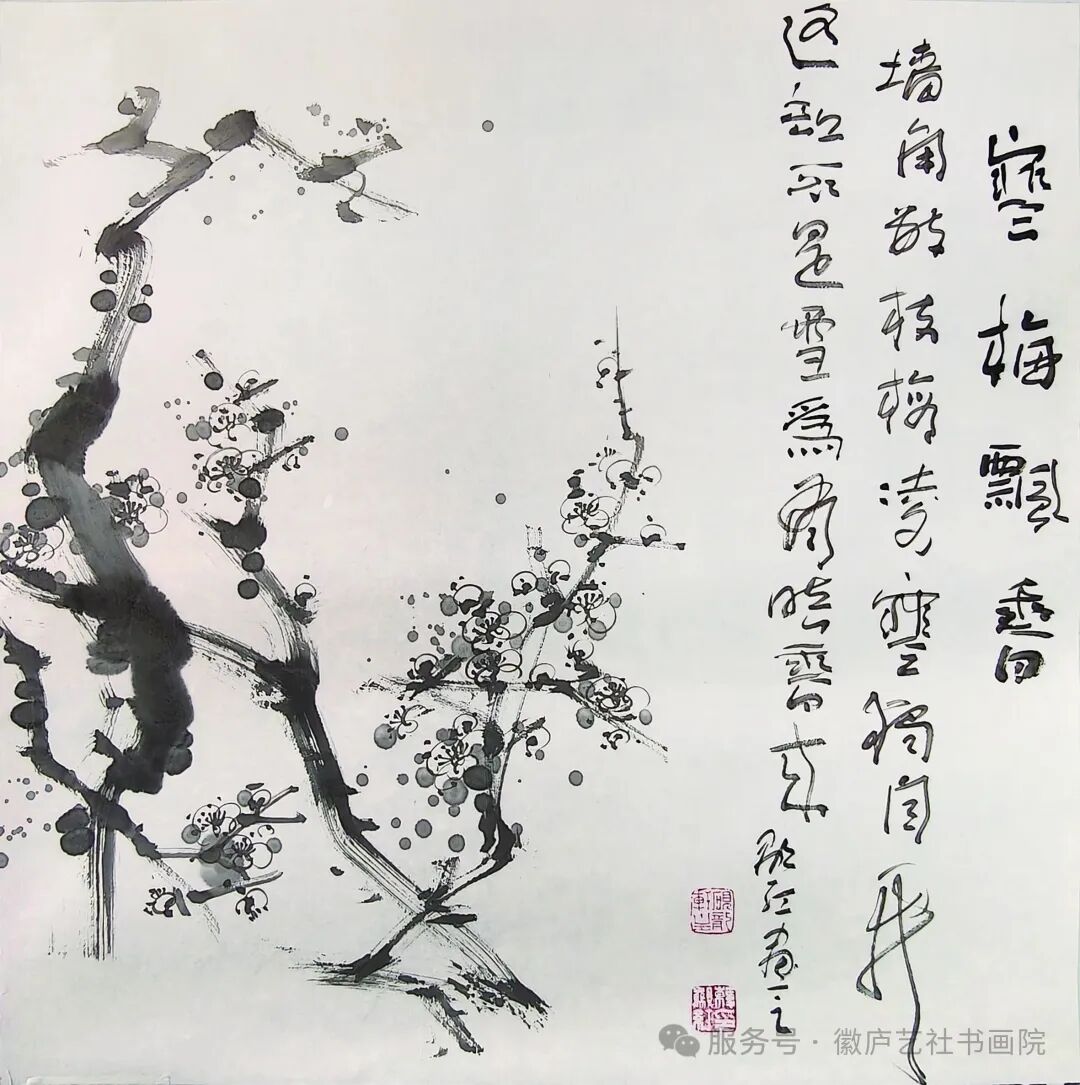 寒梅飄香
墙角数枝梅凌寒獨自开
遥知不是雪為有暗香来
画之
服务号·徽庐艺社书画院